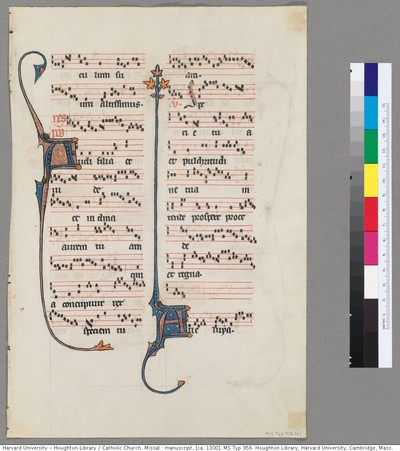 cu lum su
um altissimus.
Audi filia et
ui de
et in clina
aurem tu am
qui
a concupiuit rex
speciem tu
am.
V. spe
ci e tu a
et pulchritudi
ne tua in
tende prospere proce
de
et regna.
Alle luya.
MS Typ 956
Harvard University - Houghton Library / Catholic Church. Missal : manuscript, [ca. 1300]. MS Typ 956. Houghton Library, Harvard University, Cambridge, Mass.